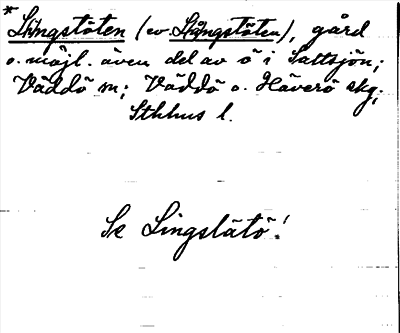 * Lingstöten (ev. Långstöten), gård
o. möjl. även del av ö i Saltsjön;
Väddö m; Väddö o. Häverö skg;
Sthlms l.
Se Lingslätö!